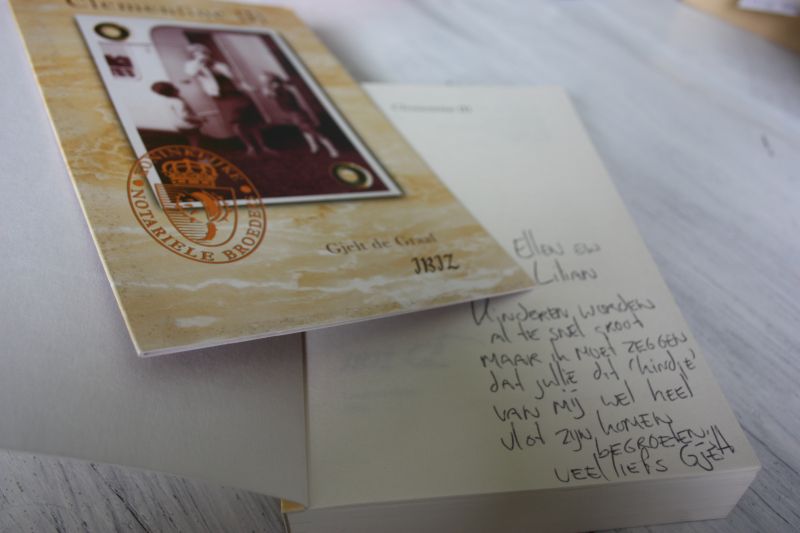 Clementine III
KONINKLIJKE
NOTARIËLE BROEDER
Gjelt de Graaf
IBIZ
Clementine III
Ellen en
Lilian
Kinderen worden
al te snel groot
maar ik moet zeggen
dat jullie dit 'kindje'
van mij wel heel
vlot zijn komen
begroeten.
veel liefs Gjelt